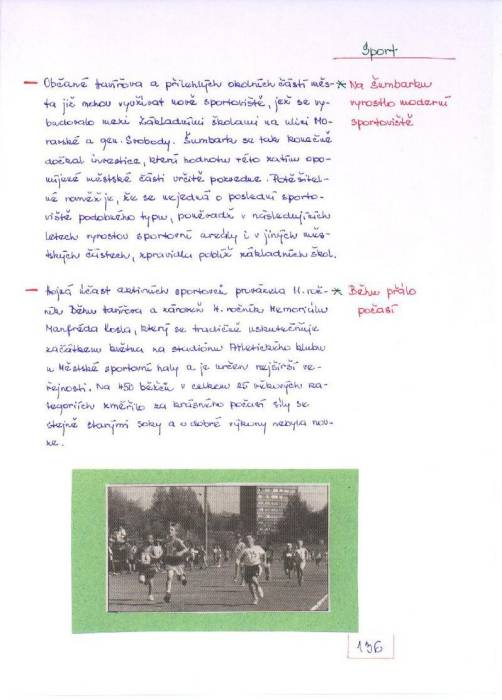 Sport
— Občané Havířova a přilehlých okolních částí měs-
ta již mohou využívat nové sportoviště, jež se vy-
budovalo mezi základními školami na ulici Mo-
ravské a gen. Svobody. Šumbark se tak konečně
dočkal investice, která hodnotu této zatím opo-
míjené městské části určitě pozvedne. Potěšitel-
né rovněž je, že se nejedná o poslední sporto-
viště podobného typu, poněvadž v následujících
letech vyrostou sportovní areály i v jiných měs-
tských částech, zpravidla poblíž základních škol.
* Na Šumbarku
vyrostlo moderní
sportoviště
— Hojná účast aktivních sportovců provázela 11. roč-
ník Běhu Havířova a zároveň 4. ročník Memoriálu
Manfréda Kosla, který se tradičně uskutečňuje
začátkem května na stadiónu Atletického klubu
u Městské sportovní haly a je určen nejširší ve-
řejnosti. Na 450 běžců v celkem 25 věkových ka-
tegoriích změřilo za krásného počasí síly se
stejně starými soky a o dobré výkony nebyla nou-
ze.
* Běhu přálo
počasí
136